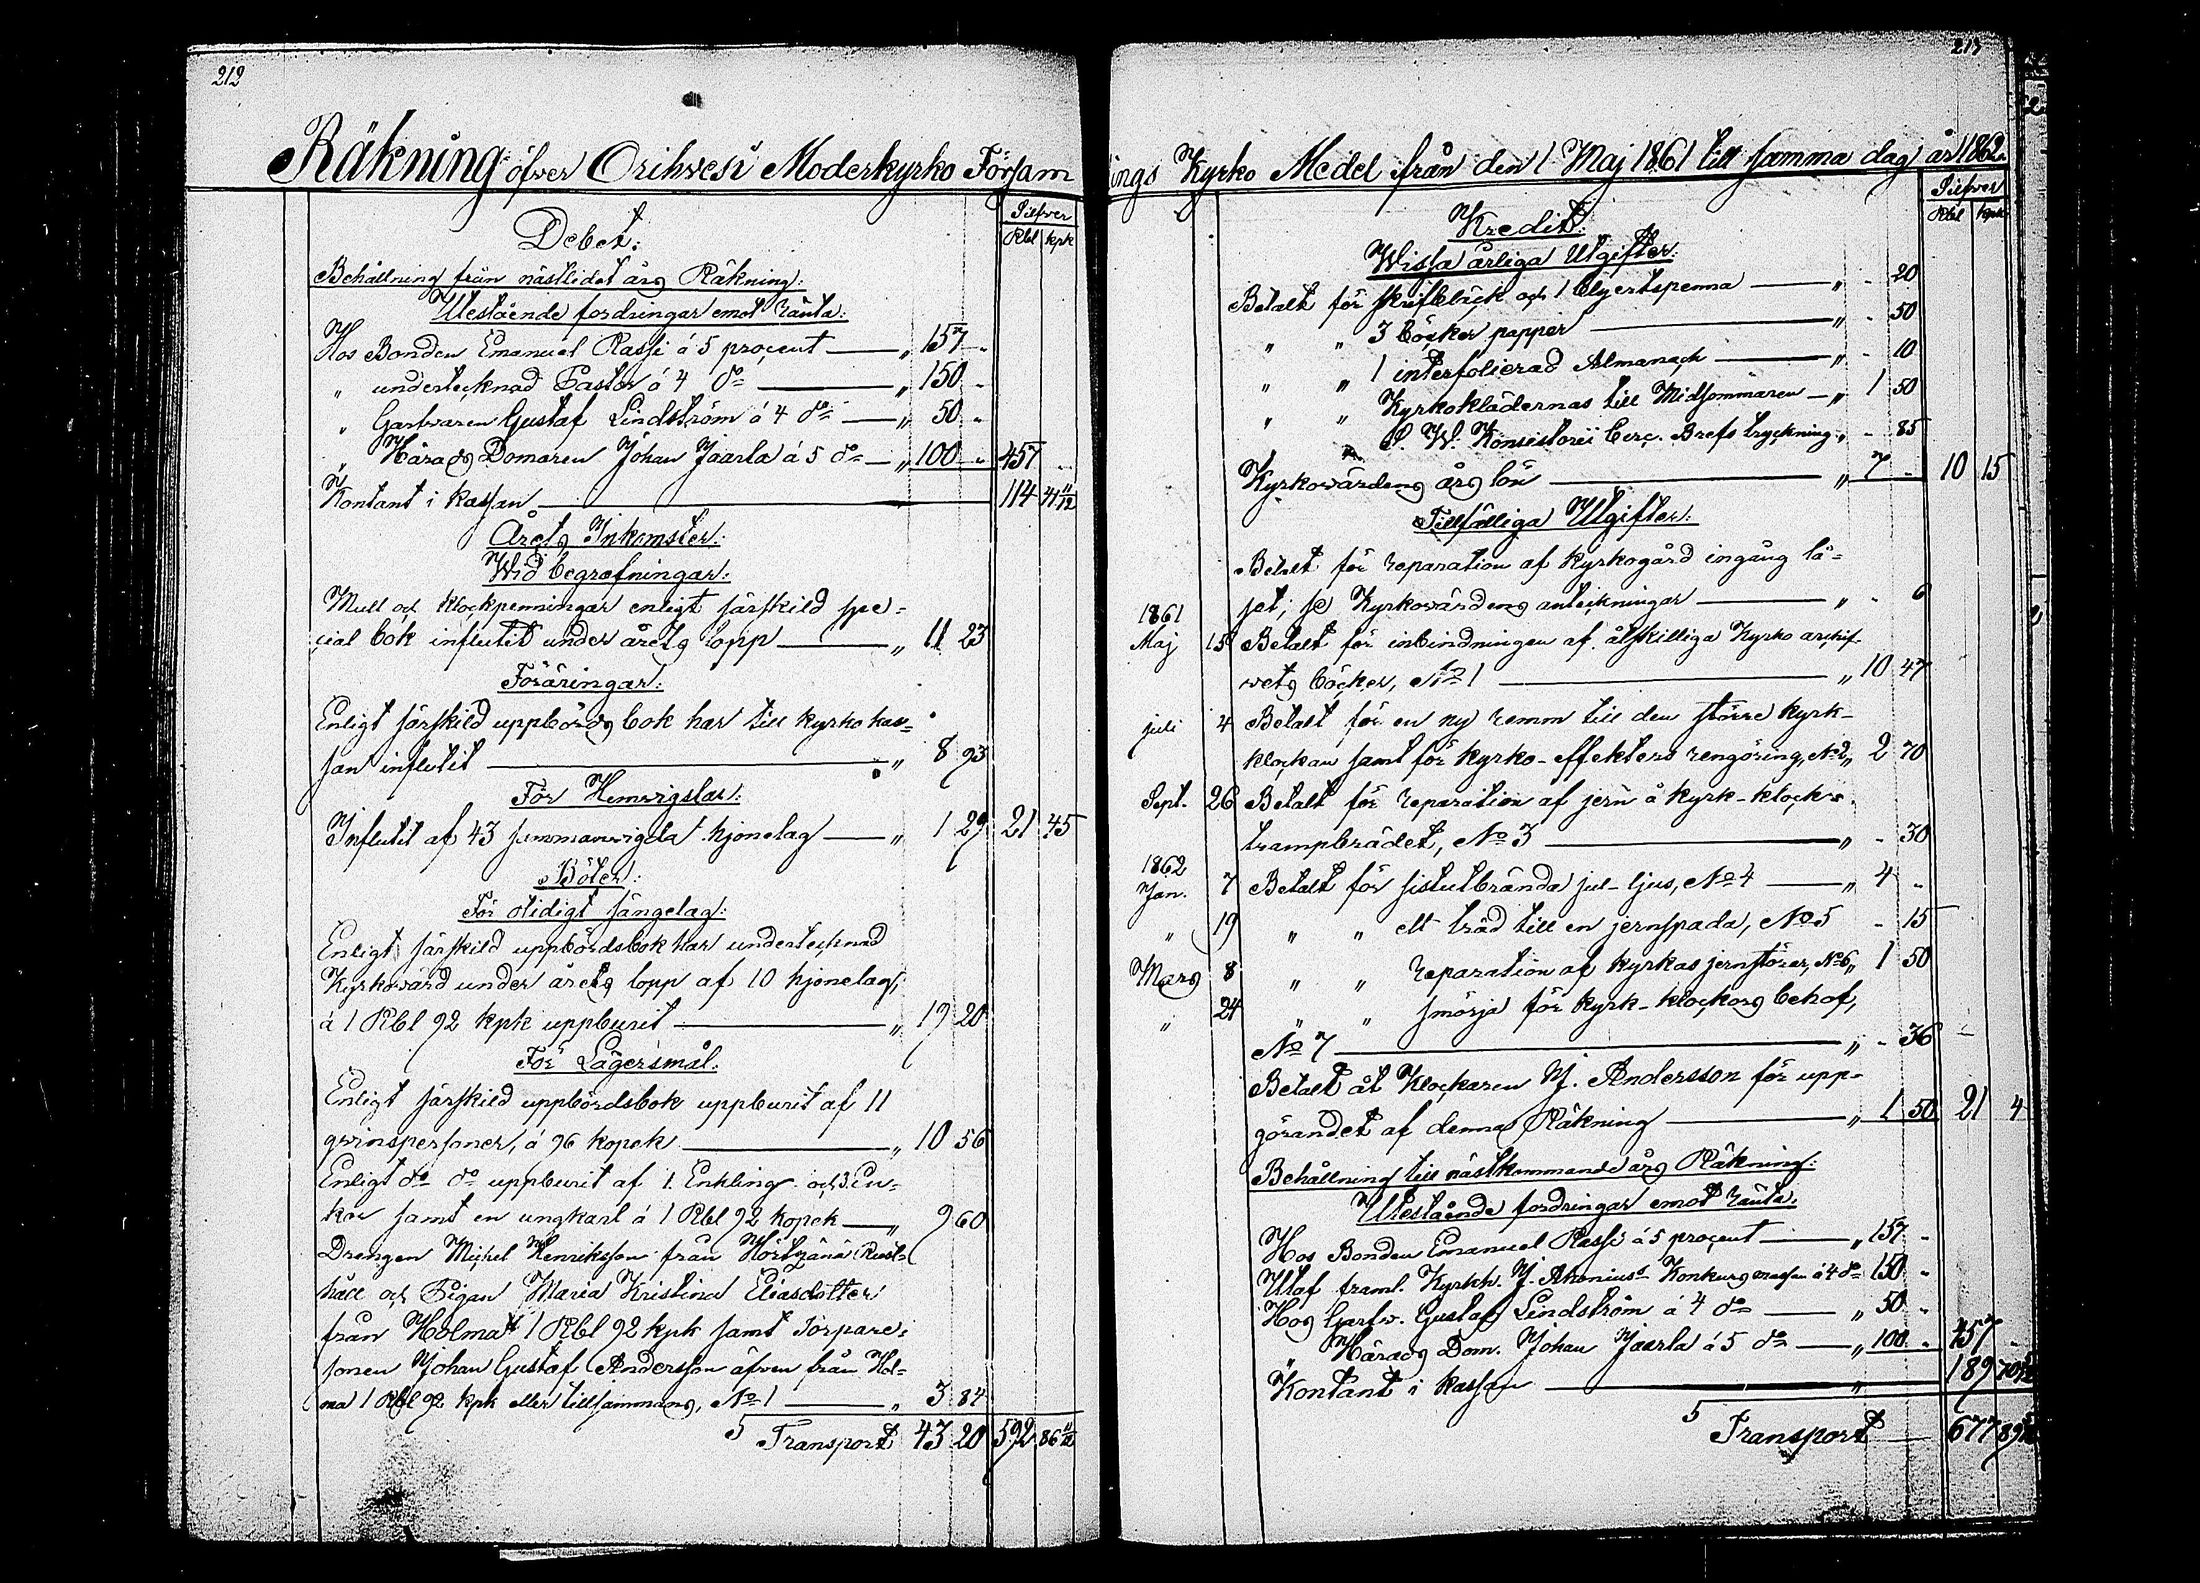 212
Räkning öfver Orihvesi Moderkyrko Försam
Silfver
Rbl kpk
Debet:
Behållning från nästlidet års Räkning:
Utestående fordringar emot ränta:
Hos Bonden Emanuel Rassi á 5 procent — „ 157 -
„ undertecknad Pastor á 4 do — „ 150 -
„ Garfvaren Gustaf Lindström á 4 do — „ 50 -
„ Härads Domaren Johan Jaarla á 5 do — „ 100 - 457 -
Kontant i kassan — 114 41 11/12
Årets Inkomster:
Wid begrafningar:
Mull och klockpenningar enligt särskild spe-
cial bok influtit under årets lopp — „ 11 23
Föräringar:
Enligt särskild uppbörds bok har till kyrko kas-
san influtit — „ 8 93
För Hemvigslar:
Influtit af 43 sammanvigda hjonelag — „ 1 29 21 45
Böter:
För otidigt sängelag:
Enligt särskild uppbördsbok har undertecknad
Kyrkovärd under årets lopp af 10 hjonelag,
á 1 Rbl 92 kpk uppburit — „ 19 20
För Lägersmål:
Enligt särskild uppbördsbok uppburit af 11
qvinspersoner, á 96 kopek — „ 10 56
Enligt do do uppburit af 1 Enkling och 3 En-
kor samt en ungkarl á 1 Rbl 92 kopek — „ 9 60
Drengen Michel Henriksson från Rust-
håll och Pigan Maria Kristina Eliasdotter
från Holma 1 Rbl 92 kpk samt Torpare-
sonen Johan Gustaf Andersson äfven från Hol-
ma 1 Rbl 92 kpk eller tillsammans, No 1 — „ 3 84
5 Transport 43 20 592 86 11/12
213
ings Kyrko Medel från den 1 Maj 1861 till samma dag år 1862.
Silfver
Rbl kpk
Kredit:
Wissa årliga Utgifter:
Betalt för skrifbläck och 1 blyertspenna — „ - 20
„ „ 3 böcker papper — „ - 50
„ „ 1 interfolierad Almanach — „ - 10
„ „ Kyrkoklädernas till Midsommaren — „ 1 50
„ S. W. Konsistorii Circ. Brefs tryckning „ - 85
Kyrkovärdens års lön — „ 7 - 10 15
Tillfälliga Utgifter:
Betalt för reparation af kyrkogård ingång lå-
set, se Kyrkovärdens anteckningar — „ - 6
1861
Maj 15 Betalt för inbindningen af åtskilliga Kyrko archif-
vets böcker, No 1 — „ 10 47
juli 4 Betalt för en ny remm till den större kyrk-
klockan samt för kyrko-effekters rengöring, No 2 „ 2 70
Sept. 26 Betalt för reparation af jern å kyrk-klock-
trampbrädet, No 3 — „ - 30
1862
Jan. 7 Betalt för sistutbrända jul-ljus, No 4 — „ 4 -
„ 19 „ „ ett träd till en jernspada, No 5 - 15
Mars 8 „ „ reparation af kyrkas jernstörer, No 6 „ 1 50
„ 24 „ „ smörja för kyrk-klockors behof,
No 7 — „ - 36
Betalt åt Klockaren M. Andersson för upp-
görandet af denna Räkning — „ 1 50 21 4
Behållning till nästkommande års Räkning:
Utestående fordringar emot ränta:
Hos Bonden Emanuel Rassi á 5 procent — „ 157 -
Utaf framl. Kyrkh. Konkursmassa á 4 do 150 -
Hos Garfv. Gustaf Lindström á 4 do — „ 50 -
„ Härads Dom. Johan Jaarla á 5 do — „ 100 - 457 -
Kontant i kassan — „ 189 70
5 Transport — 677 89